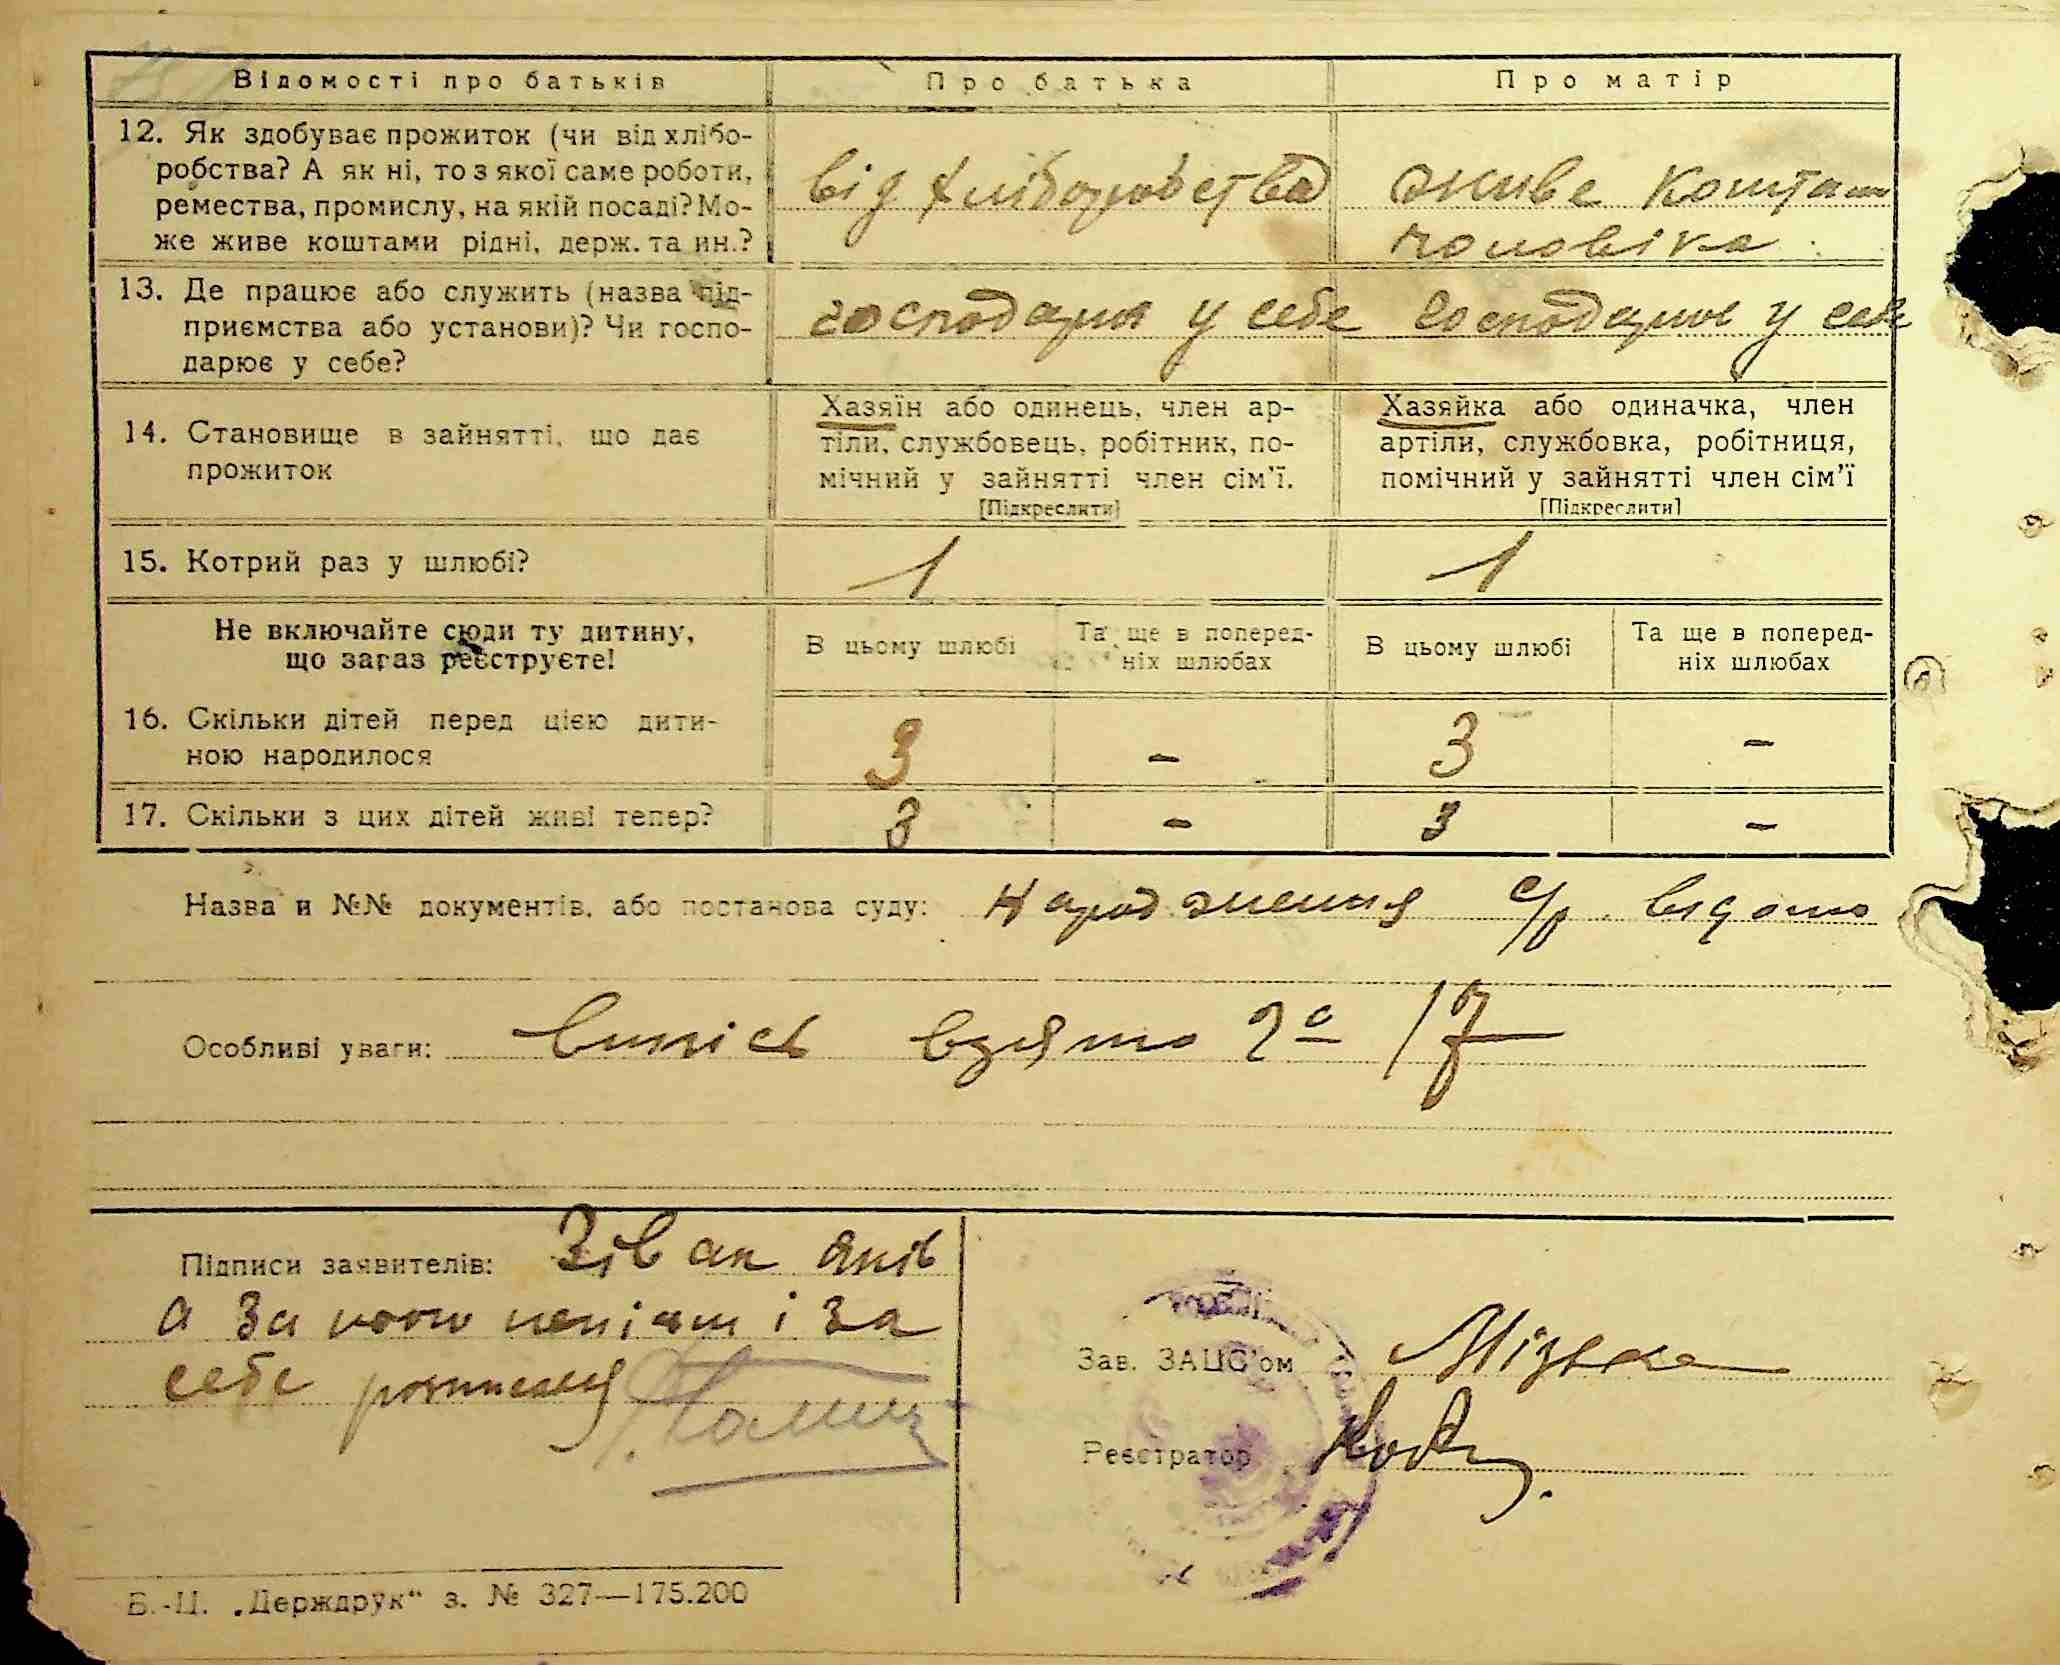 Відомості про батьків Про батька Про матір
12. Як здобуває прожиток (чи від хлібо-
робства? А як ні, то з якої саме роботи,
ремества, промислу, на якій посаді? Мо-
же живе коштами рідні, держ. та ин.?
від хліборобства
живе коштами
чоловіка
13. Де працює або служить (назва під-
приємства або установи)? Чи госпо-
дарює у себе?
господарює у себе
господарює у себе
14. Становище в зайнятті, що дає
прожиток
Хазяїн або одинець, член ар-
тіли, службовець, робітник, по-
мічний у зайнятті член сім'ї.
[Підкреслити]
Хазяйка або одиначка, член
артіли, службовка, робітниця,
помічний у зайнятті член сім'ї
[Підкреслити]
15. Котрий раз у шлюбі? 1 1
Не включайте сюди ту дитину,
що зараз реєструєте!
В цьому шлюбі
Та ще в поперед-
ніх шлюбах
В цьому шлюбі
Та ще в поперед-
ніх шлюбах
16. Скільки дітей перед цією дити-
ною народилося
3 - 3 -
17. Скільки з цих дітей живі тепер? 3 - 3 -
Назва и №№ документів, або постанова суду: народження с/р відомо
Особливі уваги: випіс взято 2º /7
Підписи заявителів: Зівак Яків
а за
і за
себе
Зав. ЗАЦС'ом
Реєстратор
Б.-Ц. „Держдрук“ з. № 327—175.200